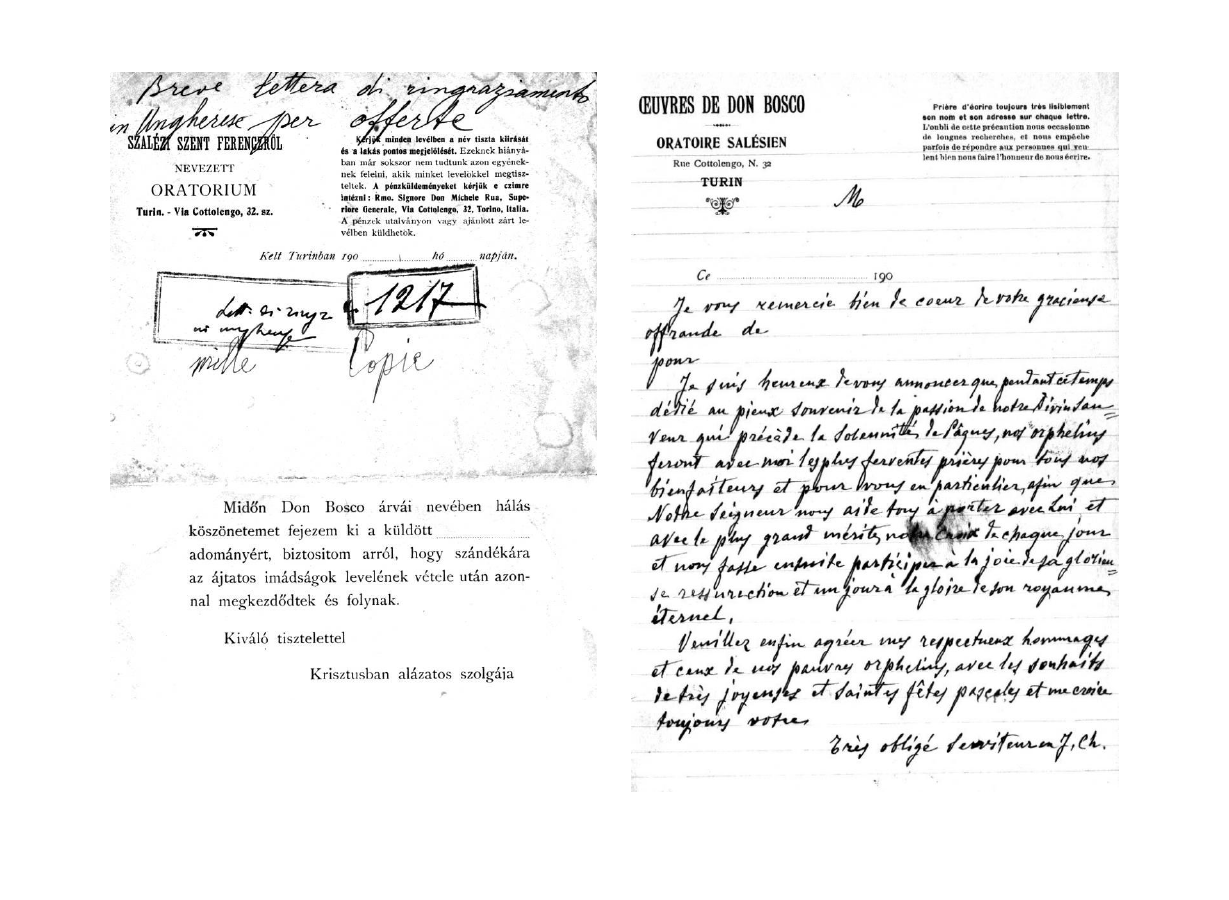 Breve lettera di ringraziamento
in Ungherese per offerte
SZALÉZI SZENT FERENCZRŐL
NEVEZETT
ORATORIUM
Turin. - Via Cottolengo, 32. sz.
Kérjük minden levélben a név tiszta kiirását
és a lakás pontos megjelölését. Ezeknek hiányá-
ban már sokszor nem tudtunk azon egyének-
nek felelni, akik minket levelökkel megtisz-
teltek. A pénzküldeményeket kérjük e czimre
intézni: Rmo. Signore Don Michele Rua, Supe-
riore Generale, Via Cottolengo, 32, Torino, Italia.
A pénzek utalványon vagy ajánlott zárt le-
vélben küldhetök.
Kelt Turinban 190 hó napján.
1217
mille Copie
Midőn Don Bosco árvái nevében hálás
köszönetemet fejezem ki a küldött
adományért, biztositom arról, hogy szándékára
az ájtatos imádságok levelének vétele után azon-
nal megkezdődtek és folynak.
Kiváló tisztelettel
Krisztusban alázatos szolgája
ŒUVRES DE DON BOSCO
ORATOIRE SALÉSIEN
Rue Cottolengo, N. 32
TURIN
Prière d'écrire toujours très lisiblement
son nom et son adresse sur chaque lettre.
L'oubli de cette précaution nous occasionne
de longues recherches, et nous empêche
parfois de répondre aux personnes qui veu-
lent bien nous faire l'honneur de nous écrire.
M
Ce 190
Je vous remercie bien de coeur de votre gracieuse
offrande de
pour
Je suis heureux de vous annoncer que, pendant ce temps
dédié au pieux souvenir de la passion de notre Divin Sau=
veur qui précède la Solennité de Pâques, nos orphelins
feront avec moi les plus ferventes prières pour tous nos
bienfaiteurs et pour vous en particulier, afin que
Notre Seigneur nous aide tous à porter avec Lui et
avec le plus grand mérite, notre Croix de chaque jour
et nous fasse ensuite participer à la joie de sa glorieu=
se resurrection et un jour à la gloire de son royaume
éternel.
Veuillez enfin agréer mes respectueux hommages
et ceux de nos pauvres orphelins, avec les souhaits
de très joyeuses et saintes fêtes pascales et me croire
toujours votre
Très obligé Serviteur en J. Ch.